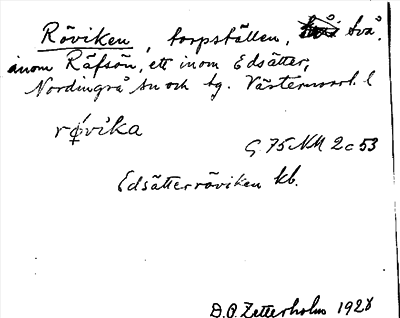 Röviken, torpställen, två
inom Räfsön, ett inom Edsätter,
Nordingrå sn och tg. Västernorrl. l
rövika
G 75 NM 2c 53
Edsätterröviken kb.
D.O. Zetterholm 1928